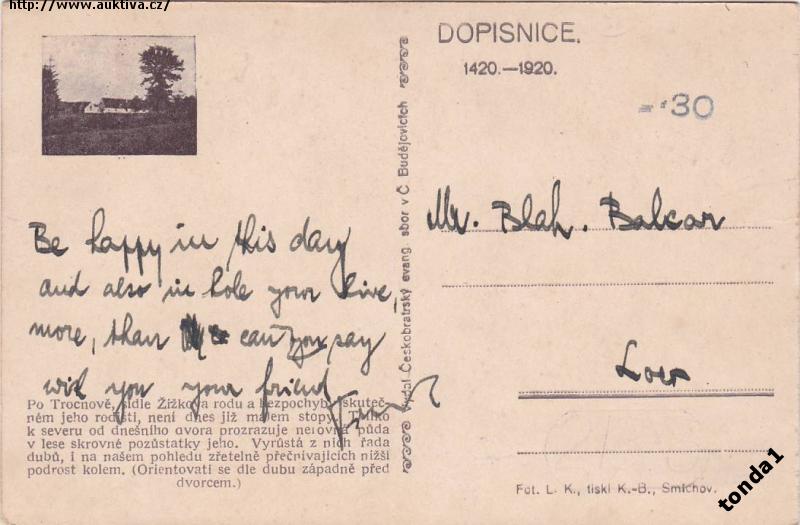 http://www.auktiva.cz/
DOPISNICE.
1420.—1920.
30
Mr. Blah. Balcar
Be happy in this day
and also in hole your live,
more, than can you say
wish you your friend
Po Trocnově, sídle Žižkova rodu a bezpochyby skuteč-
ném jeho rodišti, není dnes již málem stopy. Toliko
k severu od dnešního dvora prozrazuje nerovná půda
v lese skrovné pozůstatky jeho. Vyrůstá z nich řada
dubů, i na našem pohledu zřetelně přečnívajících nižší
podrost kolem. (Orientovati se dle dubu západně před
dvorcem.)
Vydal Českobratrský evang. sbor v Č. Budějovicích
Fot. L. K., tiskl K.-B., Smíchov.
tonda1